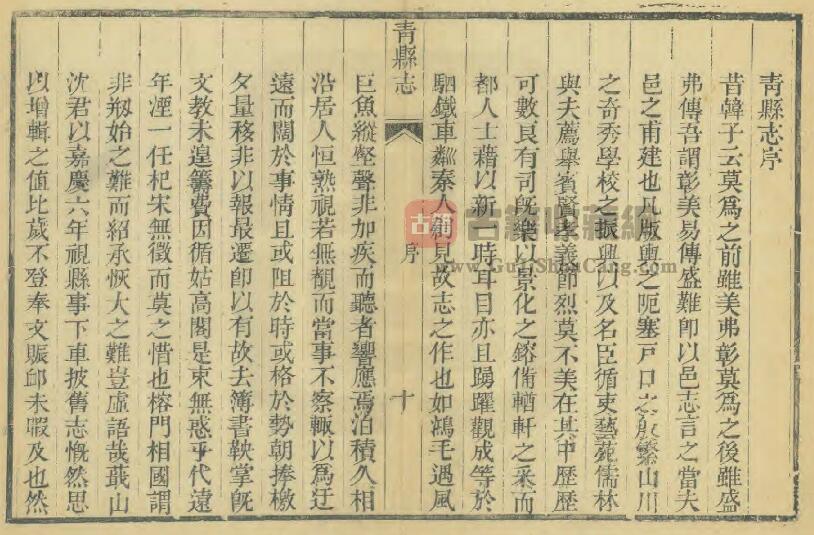 青縣志序
昔韓子云莫為之前雖美弗彰莫為之後雖盛
弗傳吾謂彰美易傳盛難即以邑志言之當夫
邑之甫建也凡版輿之阨塞戸口之殷繁山川
之奇秀學校之振興以及名臣循吏藝苑儒林
與夫薦舉賓賢孝義節烈莫不美在其中歷歷
可數良有司旣樂以景化之鎔備輶軒之采而
都人士藉以新一時耳目亦且踴躍觀成等於
駟鐵車鄰秦人創見故志之作也如鴻毛遇風
青縣志
序
十
巨魚縱壑聲非加疾而聽者響應焉洎積久相
沿居人恒熟視若無覩而當事不察輙以為迂
遠而闊於事情且或阻於時或格於勢朝捧檄
夕量移非以報最遷即以有故去簿書鞅掌旣
文教未遑籌費因循姑高閣是束無惑乎代遠
年湮一任杞宋無徵而莫之惜也榕門相國謂
非剏始之難而紹承恢大之難豈虛語哉蕺山
沈君以嘉慶六年視縣事下車披舊志慨然思
以增輯之值比歲不登奉文賑卹未暇及也然
古籍收藏網
www.GuJiShouCang.com